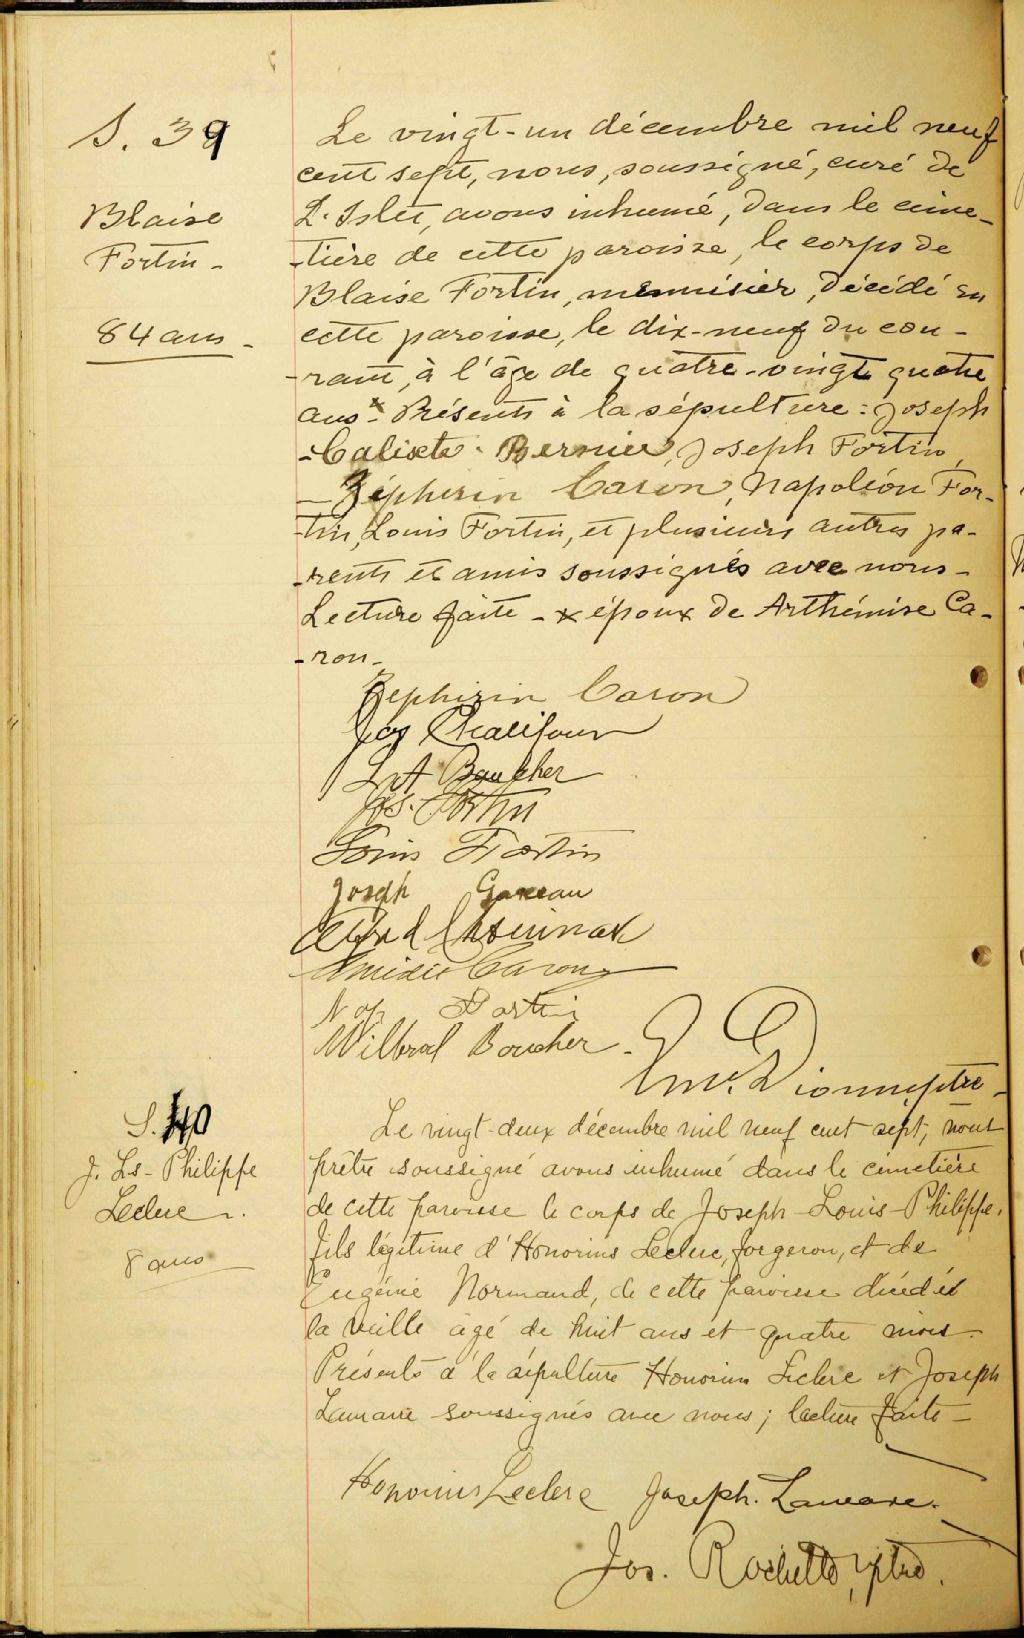 S. 39
Blaise
Fortin -
84 ans -
Le vingt-un décembre mil neuf
cent sept, nous, soussigné, curé de
L'Islet, avons inhumé, dans le cime-
-tière de cette paroisse, le corps de
Blaise Fortin, menuisier, décédé en
cette paroisse, le dix-neuf du cou-
-rant, à l'âge de quatre-vingt quatre
ans x. Présents à la sépulture : Joseph
-Calixte Bernier, Joseph Fortin,
- Zéphirin Caron, Napoléon For-
-tin, Louis Fortin, et plusieurs autres pa-
-rents et amis soussignés avec nous -
Lecture faite - x époux de Arthémise Ca-
-ron -
Zephirin Caron
Jos Chalifour
Boucher
Jos. Fortin
Louis Fortin
Joseph Gareau
Caron
Nap Fortin
Wilbrod Boucher -
Em. Dionne, ptre -
S. 40
J. Ls - Philippe
Leclerc -.
8 ans
Le vingt-deux décembre mil neuf cent sept, nous
prêtre soussigné avons inhumé dans le cimetière
de cette paroisse le corps de Joseph-Louis-Philippe,
fils légitime d'Honorius Leclerc, forgeron, et de
Eugénie Normand, de cette paroisse décédé
la veille agé de huit ans et quatre mois -
Présents à la sépulture Honorius Leclerc et Joseph
Lamarre soussignés avec nous ; lecture faite -
Honorius Leclerc Joseph. Lamarre.
Jos. Rochette, ptre.